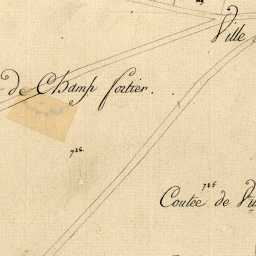 Ville
de Champ fortier.
726.
725
Coutée de